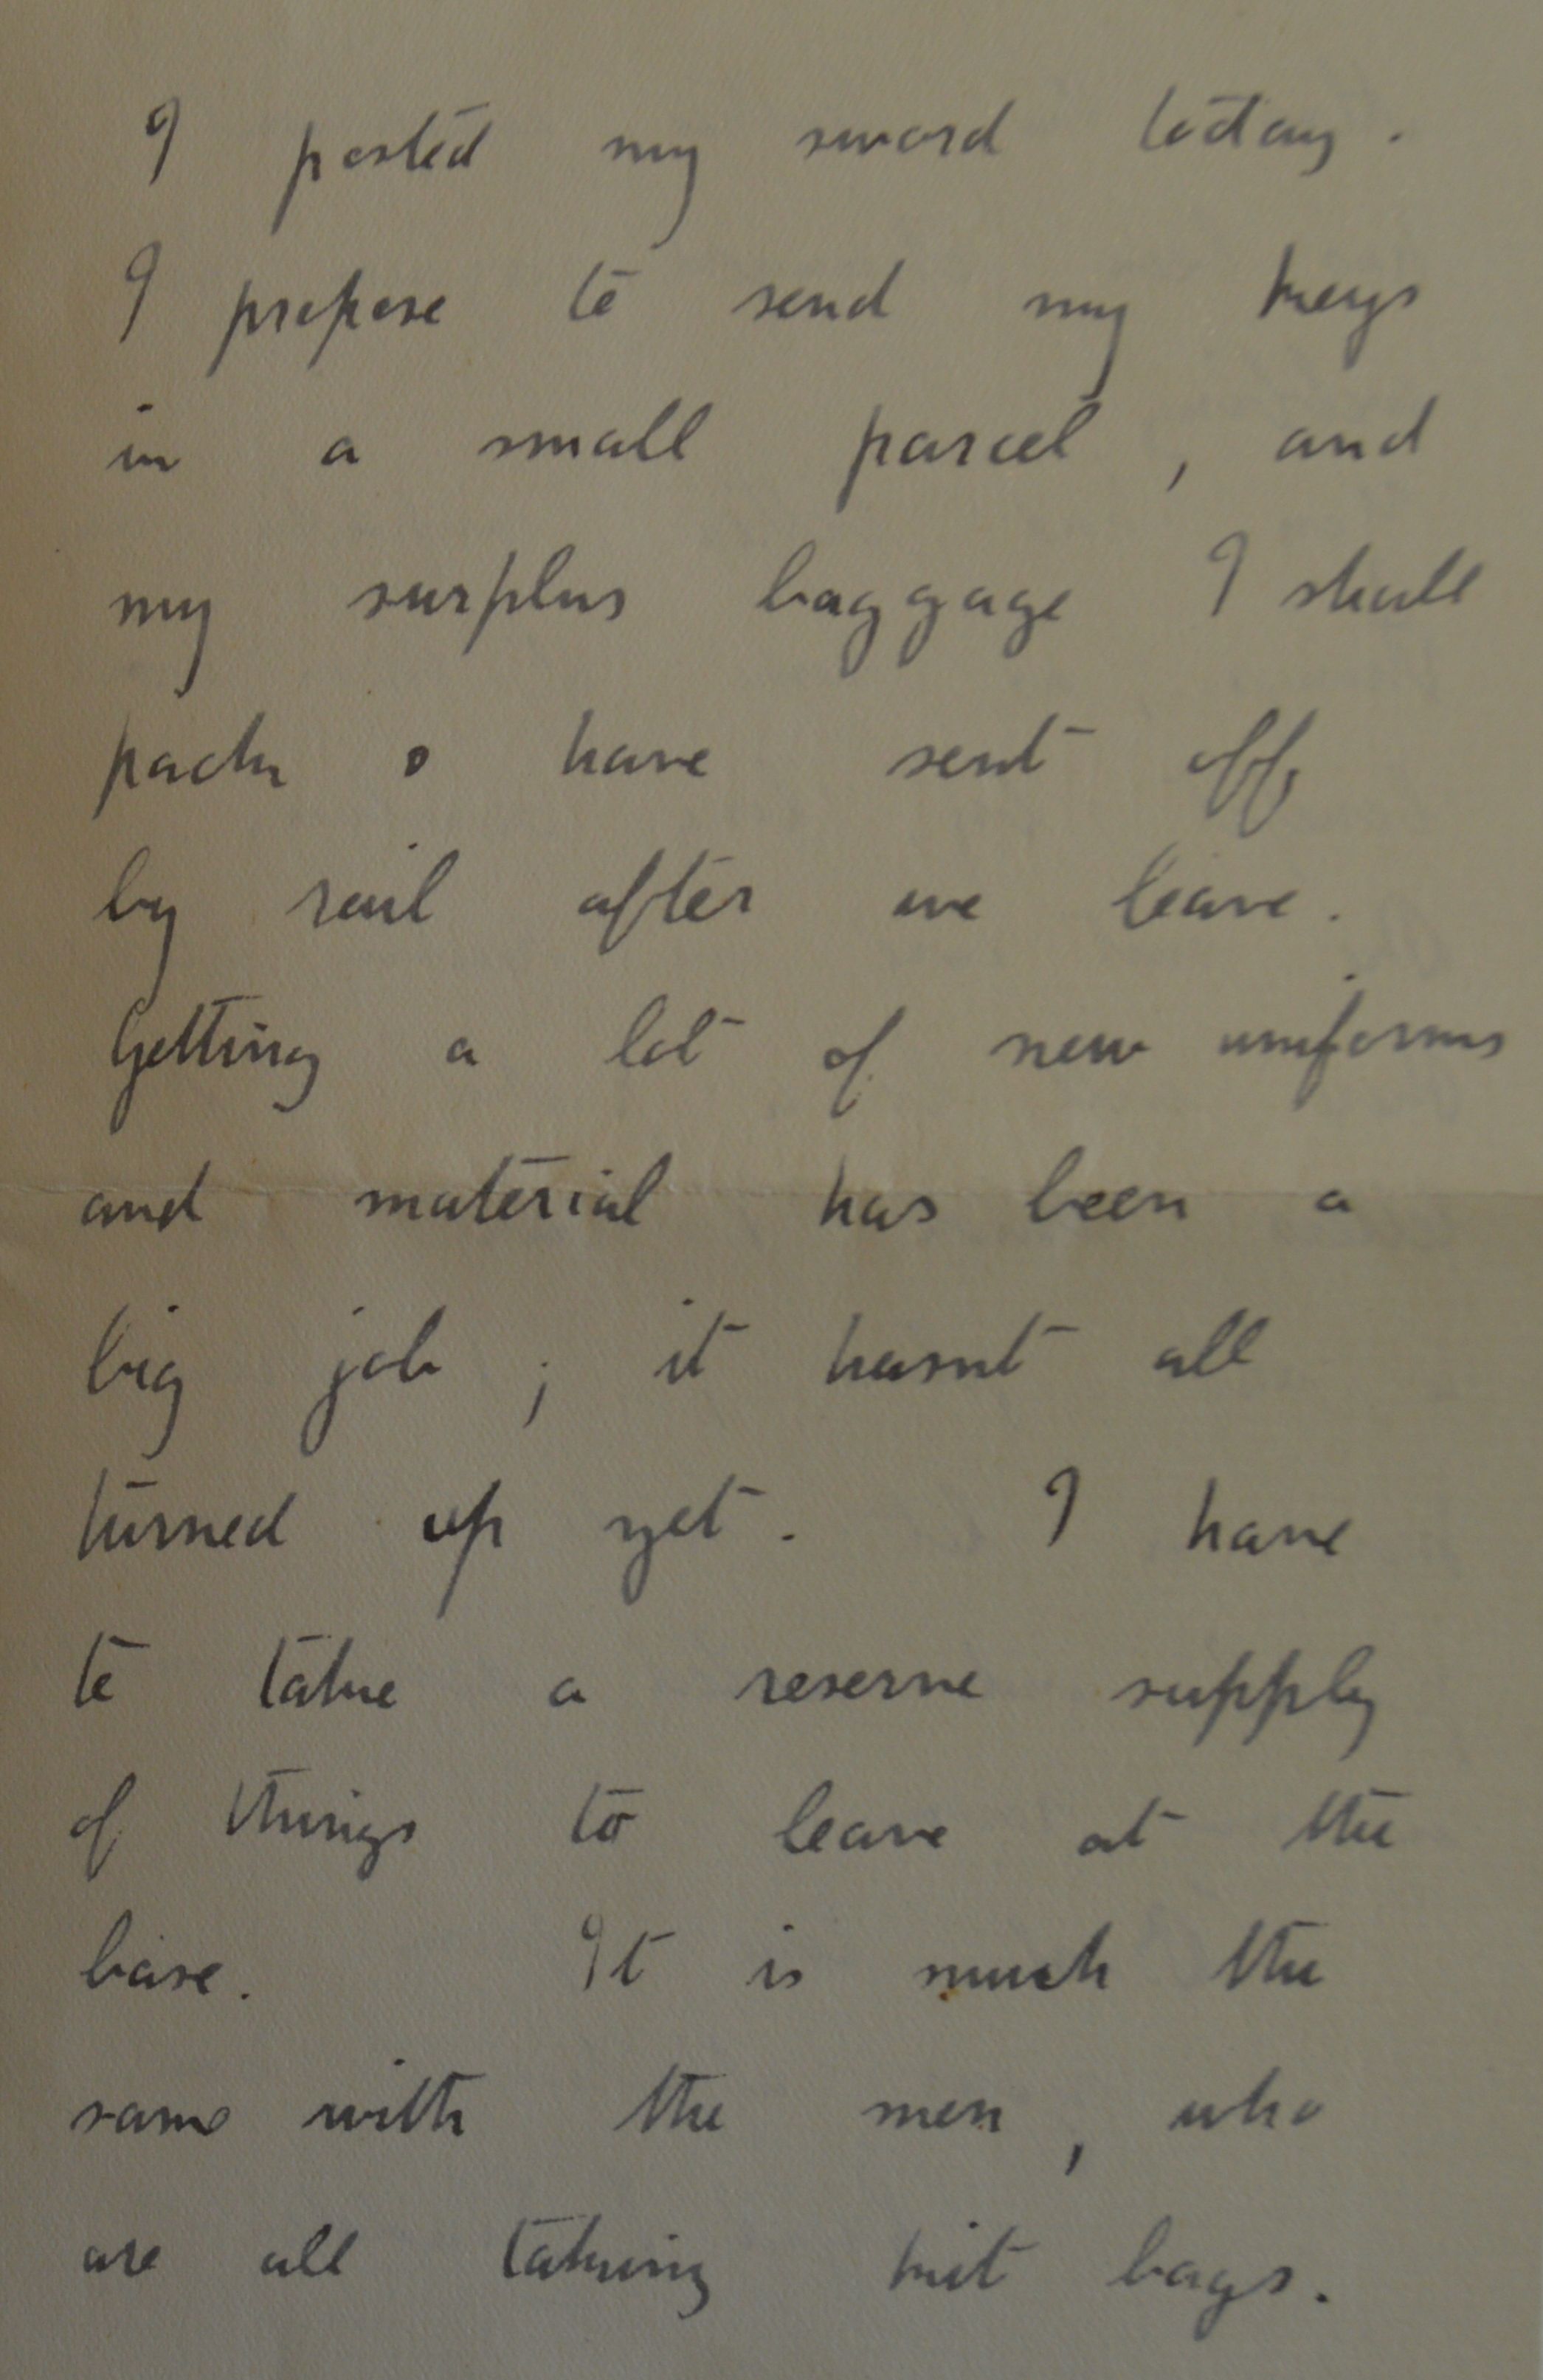 I posted my sword today.
I propose to send my keys
in a small parcel, and
my surplus baggage I shall
pack & have sent off
by rail after we leave.
Getting a lot of new uniforms
and material has been a
big job; it hasnt all
turned up yet. I have
to take a reserve supply
of things to leave at the
base. It is much the
same with the men, who
are all taking kit bags.